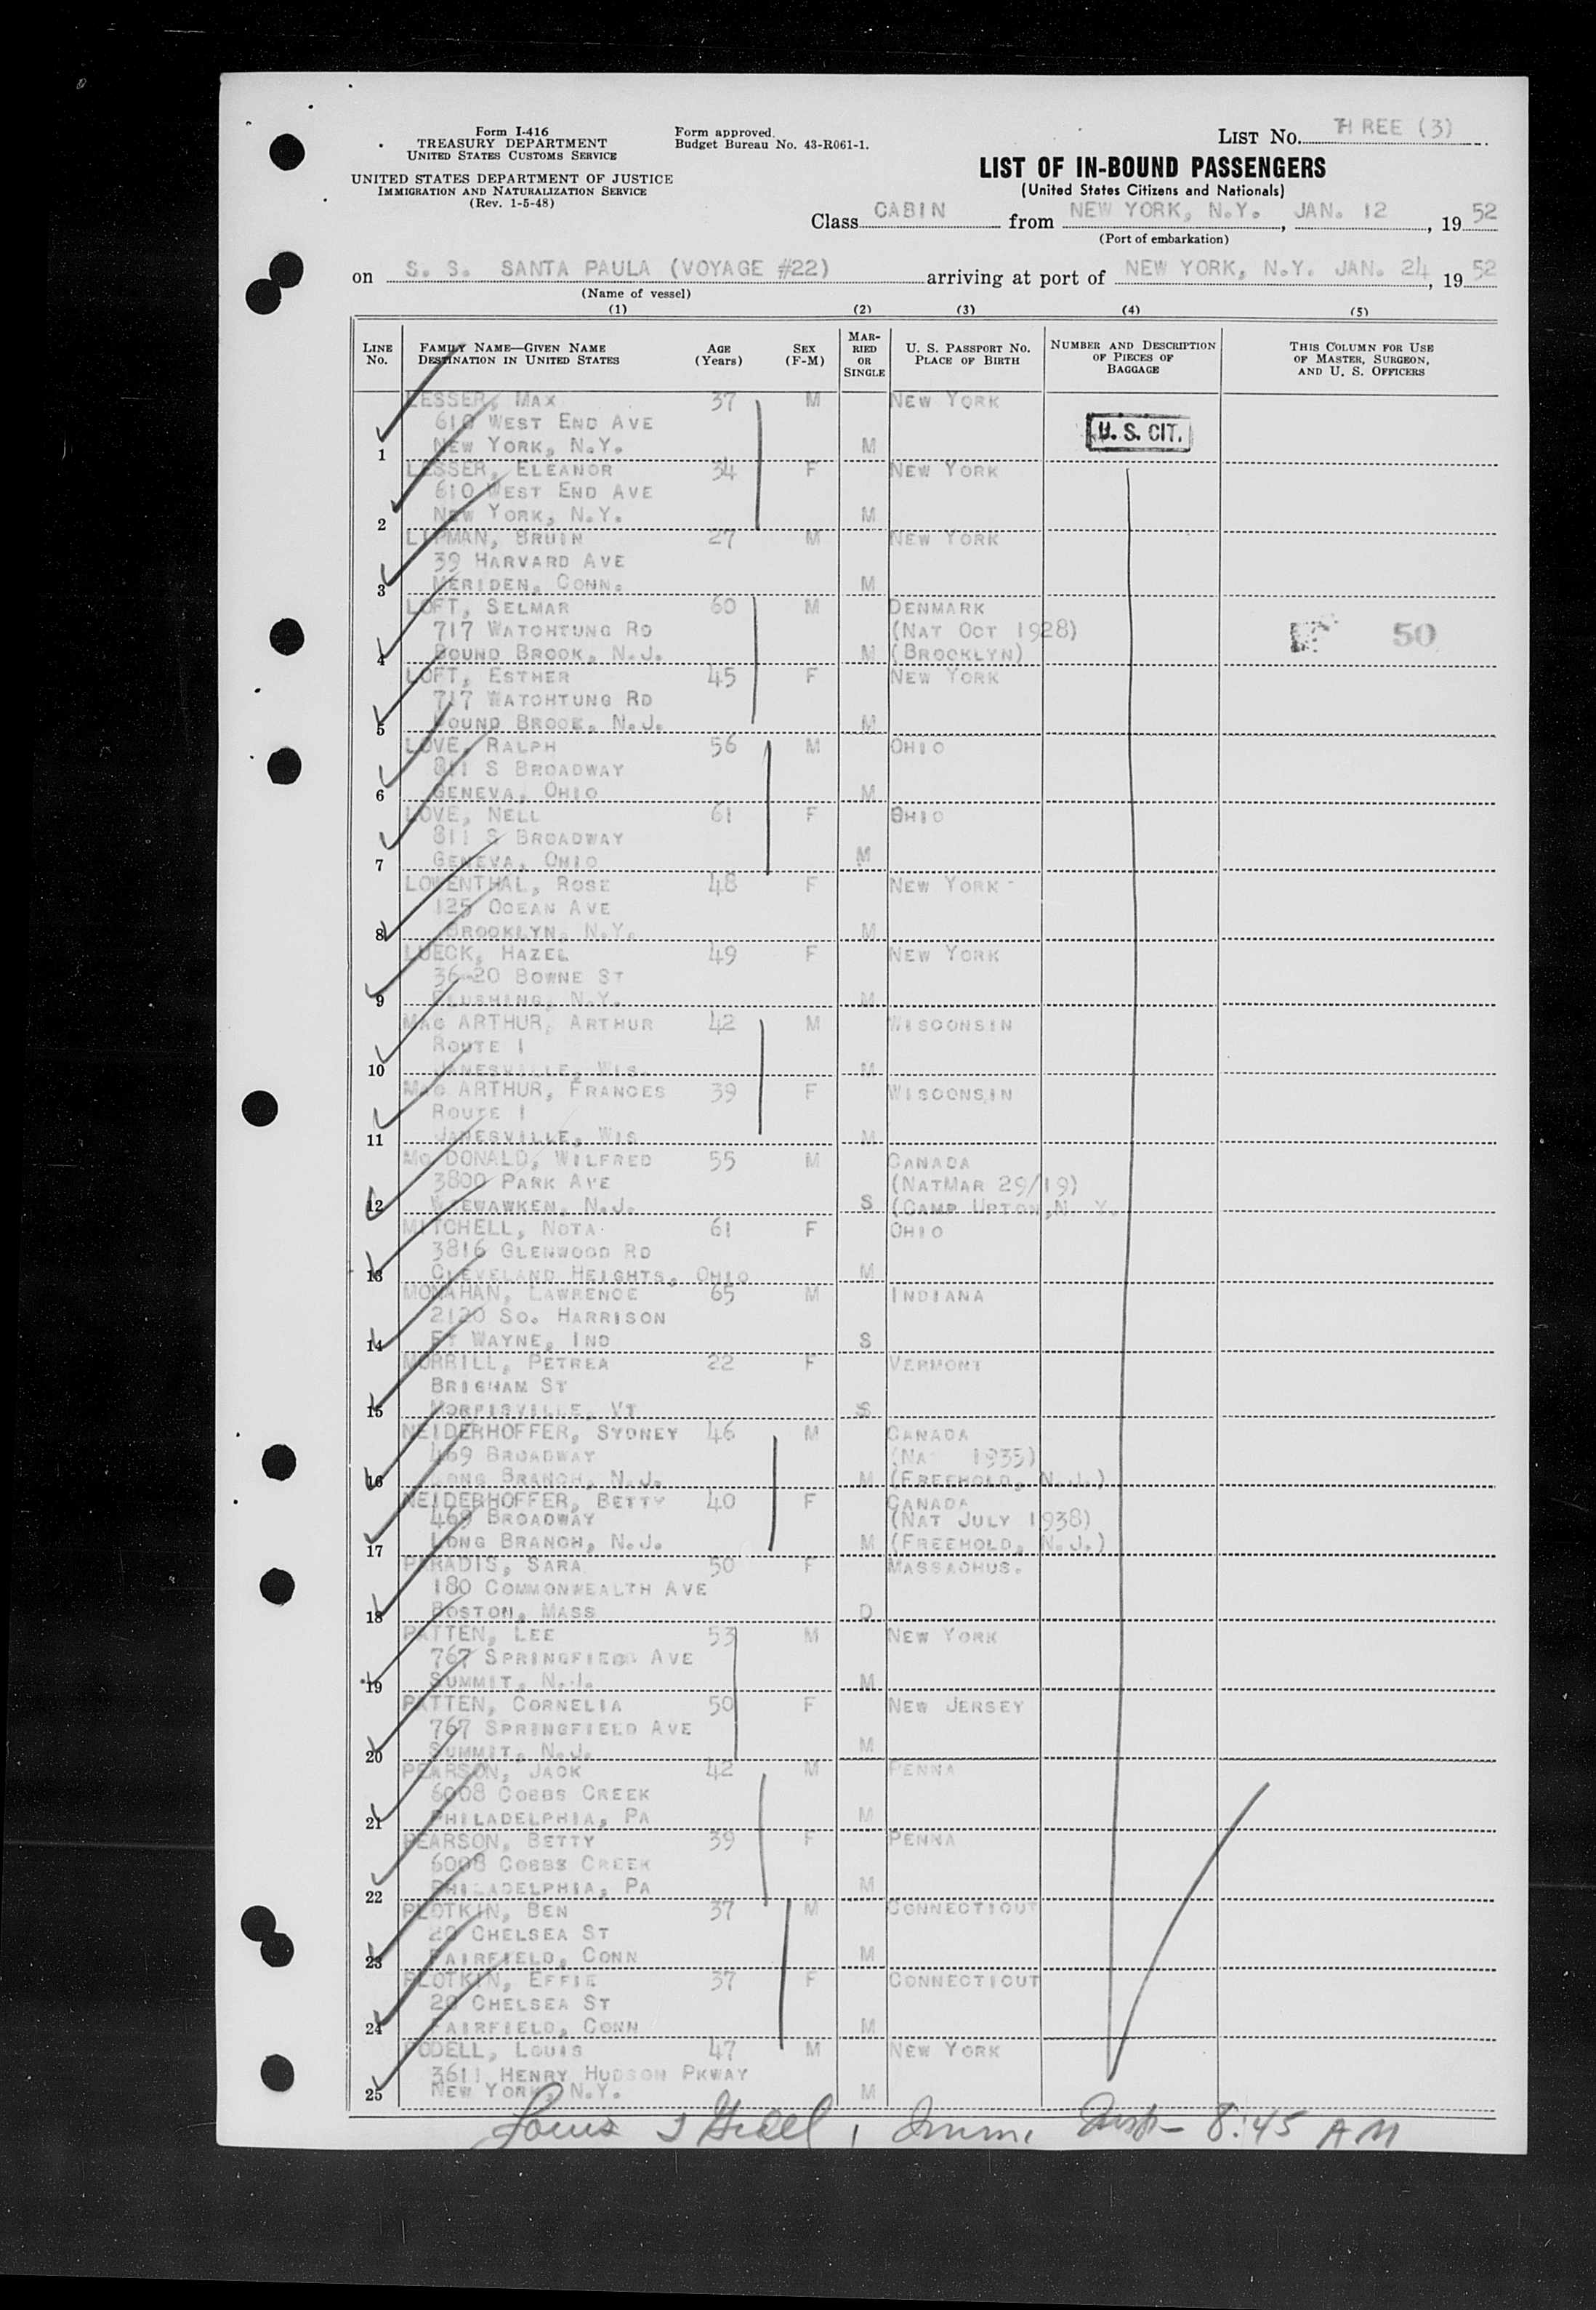 Form I-416
TREASURY DEPARTMENT
UNITED STATES CUSTOMS SERVICE
UNITED STATES DEPARTMENT OF JUSTICE
IMMIGRATION AND NATURALIZATION SERVICE
(Rev. 1-5-48)
Form approved.
Budget Bureau No. 43-R061-1.
LIST No. THREE (3)
LIST OF IN-BOUND PASSENGERS
(United States Citizens and Nationals)
Class CABIN from NEW YORK, N.Y. JAN. 12, 1952
(Port of embarkation)
on S. S. SANTA PAULA (VOYAGE #22) arriving at port of NEW YORK, N.Y. JAN. 24, 1952
(Name of vessel)
(1) (2) (3) (4) (5)
LINE NO. FAMILY NAME—GIVEN NAME DESTINATION IN UNITED STATES AGE (Years) SEX (F-M) MARRIED OR SINGLE U. S. PASSPORT NO. PLACE OF BIRTH NUMBER AND DESCRIPTION OF PIECES OF BAGGAGE THIS COLUMN FOR USE OF MASTER, SURGEON, AND U. S. OFFICERS
LESSER, MAX 37 M NEW YORK
610 WEST END AVE U. S. CIT.
1 NEW YORK, N.Y. M
LESSER, ELEANOR 34 F NEW YORK
610 WEST END AVE
2 NEW YORK, N.Y. M
LIPMAN, BRUIN 27 M NEW YORK
39 HARVARD AVE
3 MERIDEN, CONN. M
LOFT, SELMAR 60 M DENMARK
717 WATCHTUNG RD (NAT OCT 1928) 50
4 BOUND BROOK, N.J. M (BROOKLYN)
LOFT, ESTHER 45 F NEW YORK
717 WATCHTUNG RD
5 BOUND BROOK, N.J. M
LOVE, RALPH 56 M OHIO
811 S BROADWAY
6 GENEVA, OHIO M
LOVE, NELL 61 F OHIO
811 S BROADWAY
7 GENEVA, OHIO M
LOWENTHAL, ROSE 48 F NEW YORK
125 OCEAN AVE
8 BROOKLYN, N.Y. M
LUECK, HAZEL 49 F NEW YORK
36-20 BOWNE ST
9 FLUSHING, N.Y. M
MAC ARTHUR, ARTHUR 42 M WISCONSIN
ROUTE 1
10 JANESVILLE, WIS. M
MAC ARTHUR, FRANCES 39 F WISCONSIN
ROUTE 1
11 JANESVILLE, WIS M
MC DONALD, WILFRED 55 M CANADA
3800 PARK AVE (NATMAR 29/19)
12 WEEWAWKEN, N.J. S (CAMP UPTON, N.Y.
MITCHELL, NOTA 61 F OHIO
3816 GLENWOOD RD
13 CLEVELAND HEIGHTS, OHIO M
MONAHAN, LAWRENCE 65 M INDIANA
2120 SO. HARRISON
14 FT WAYNE, IND S
MORRILL, PETREA 22 F VERMONT
BRIGHAM ST
15 MORRISVILLE, VT S
NEIDERHOFFER, SYDNEY 46 M CANADA
469 BROADWAY (NAT 1935)
16 LONG BRANCH, N.J. M (FREEHOLD, N.J.)
NEIDERHOFFER, BETTY 40 F CANADA
469 BROADWAY (NAT JULY 1938)
17 LONG BRANCH, N.J. M (FREEHOLD, N.J.)
PARADIS, SARA 50 F MASSACHUS.
180 COMMONWEALTH AVE
18 BOSTON, MASS D
PATTEN, LEE 53 M NEW YORK
767 SPRINGFIELD AVE
19 SUMMIT, N.J. M
PATTEN, CORNELIA 50 F NEW JERSEY
767 SPRINGFIELD AVE
20 SUMMIT, N.J. M
PEARSON, JACK 42 M PENNA
6008 COBBS CREEK
21 PHILADELPHIA, PA M
PEARSON, BETTY 39 F PENNA
6008 COBBS CREEK
22 PHILADELPHIA, PA M
PLOTKIN, BEN 37 M CONNECTICUT
20 CHELSEA ST
23 FAIRFIELD, CONN M
PLOTKIN, EFFIE 37 F CONNECTICUT
20 CHELSEA ST
24 FAIRFIELD, CONN M
PODELL, LOUIS 47 M NEW YORK
3611 HENRY HUDSON PKWAY
25 NEW YORK, N.Y. M
Louis I , Imm. Insp - 8:45 AM